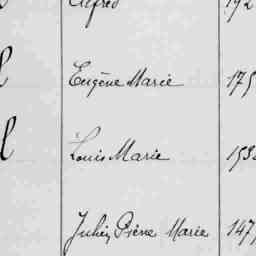 Alfred 192
Eugène Marie 175
Louis Marie 153
Julien Pierre Marie 147